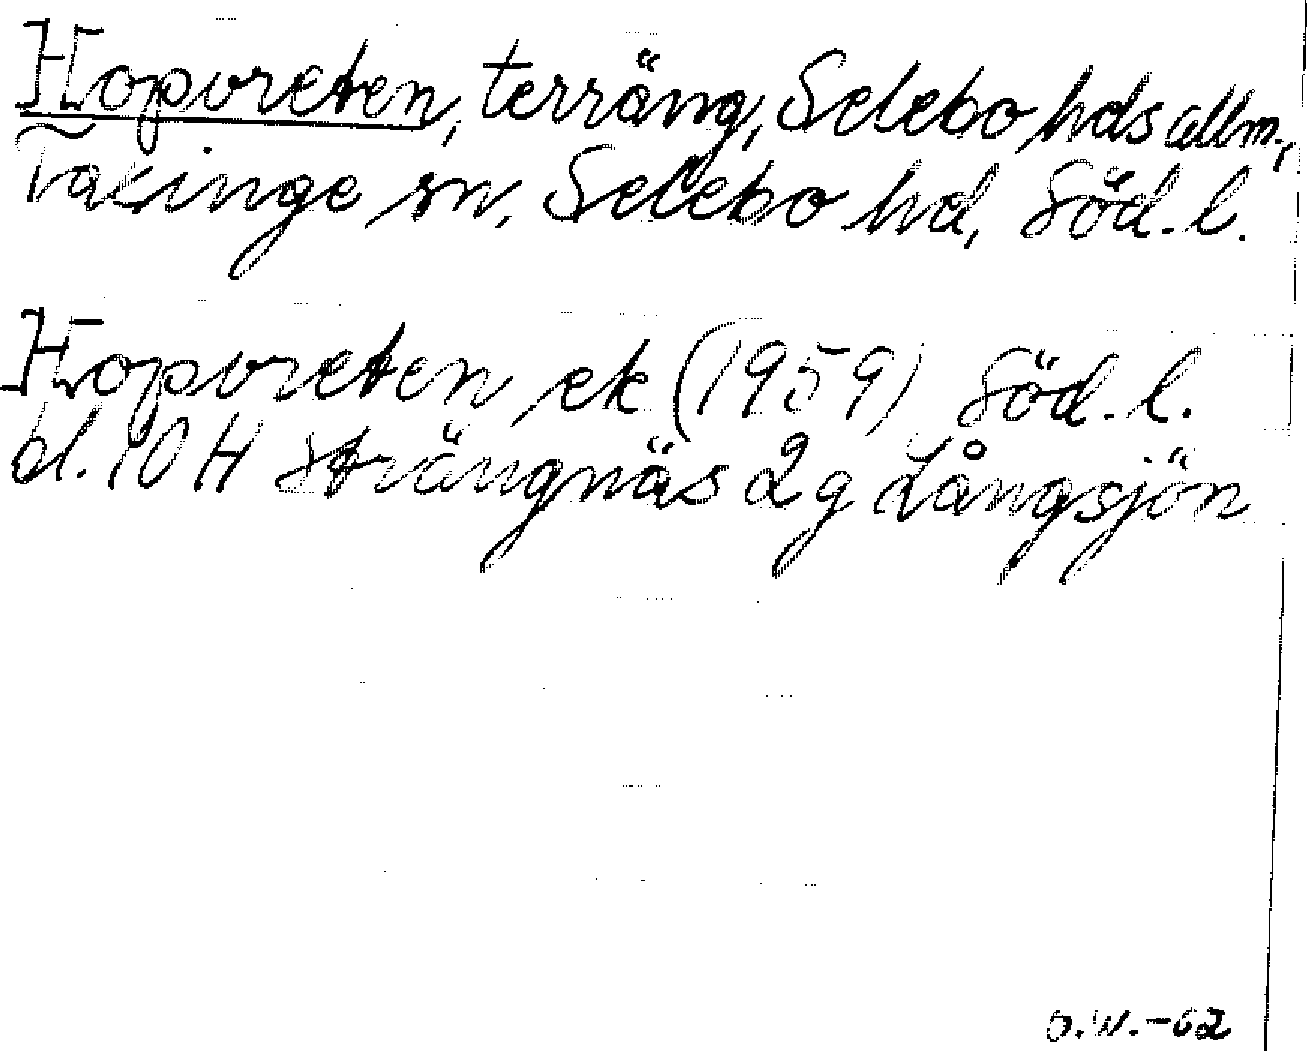 Hopvreten, terräng, Selebo hds allm.,
Taxinge sn, Selebo hd, Söd. l.
Hopvreten ek (1959) Söd. l.
bl. 10 H Strängnäs 2 g Långsjön
O.W.-62